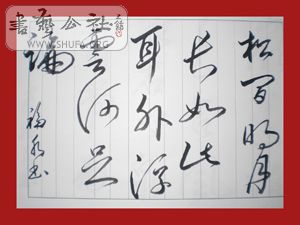 松间明月
长如此
耳外浮
言何足
论
福永书
書藝公社
WWW.SHUFA.ORG